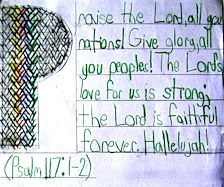 Praise the Lord, all you
nations! Give glory, all
you peoples! The Lord's
love for us is strong;
the Lord is faithful
forever. Hallelujah!
(Psalm 117:1-2)